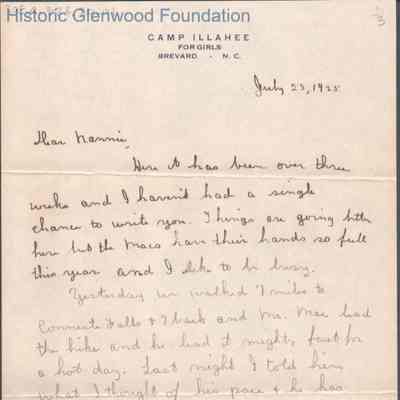 Historic Glenwood Foundation
CAMP ILLAHEE
FOR GIRLS
BREVARD. - N. C.
July 23, 1925
Dear Nannie,
Here it has been over three
weeks and I haven't had a single
chance to write you. Things are going
here but the Macs have their hands so full
this year and I like to be busy.
Yesterday we walked 7 miles to
Connestee Falls & 7 back and Mr. Mac lead
the hike and he lead it mighty fast for
a hot day. Last night I told him
what I thought of his pace & he has